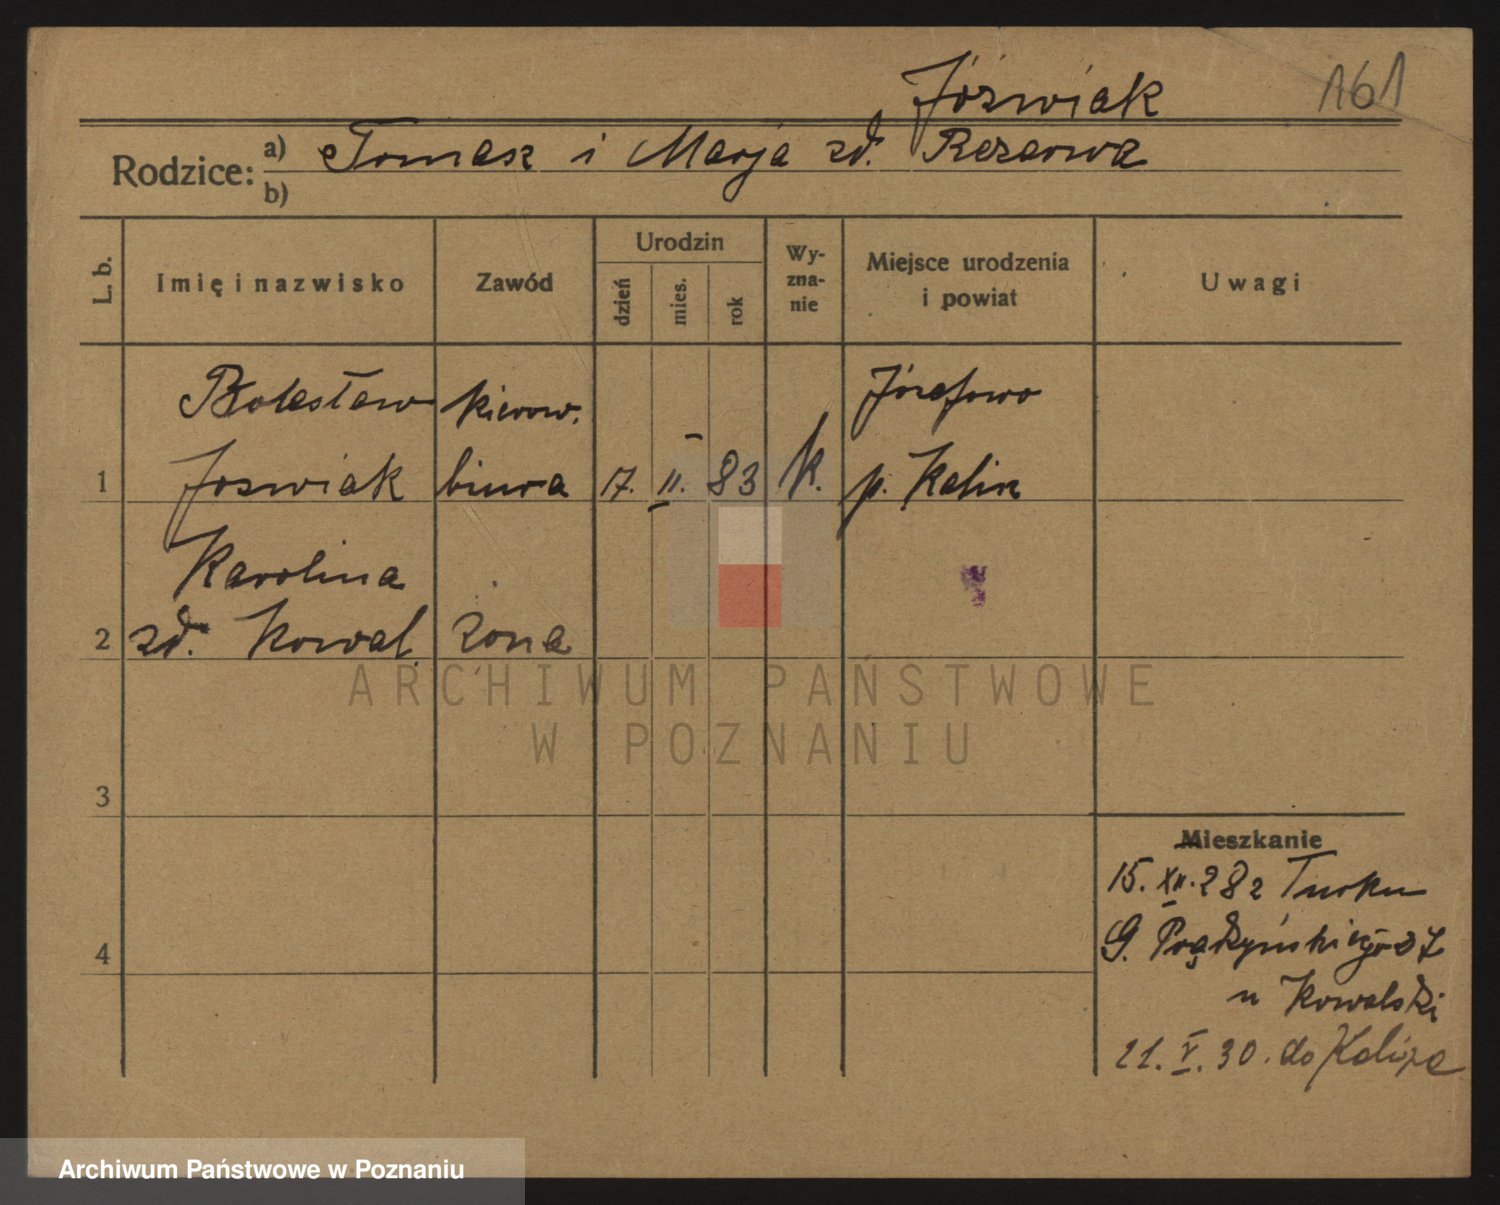 Jóźwiak 161
Rodzice: a) Tomasz i Marja zd. Rezarwa
b)
L. b. Imię i nazwisko Zawód Urodzin dzień mies. rok Wy-zna-nie Miejsce urodzenia i powiat Uwagi
Bolesław kierow. Józefowo
1 Joswiak biura 17. II. 83 k. p. Kalisz
Karolina
2 zd. Kowal. żona
ARCHIWUM PAŃSTWOWE
W POZNANIU
3
Mieszkanie
15. XII. 28 z Turku
4 G. Prądzyńskiego 27
u Kowalski
21. V. 30. do Kalisza
Archiwum Państwowe w Poznaniu